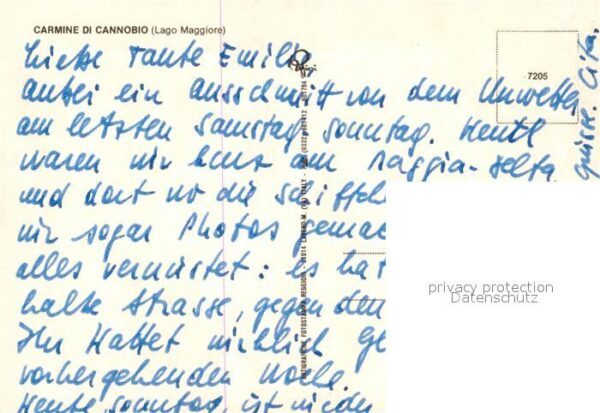 CARMINE DI CANNOBIO (Lago Maggiore)
7205
Liebe Tante Emilie,
anbei ein Ausschnitt von dem Unwetter
am letzten Samstag, Sonntag. Heute
waren wir kurz am Maggia-Delta
und dort wo die Schiffch
wir sogar Photos gemac
alles verwüstet: es hat
halbe Strasse, gegen den
Ihr hattet wirklich Ge
vorhergehenden Woche.
Heute Sonntag, ist wieder
Grüsse. Cita.
privacy protection
Datenschutz